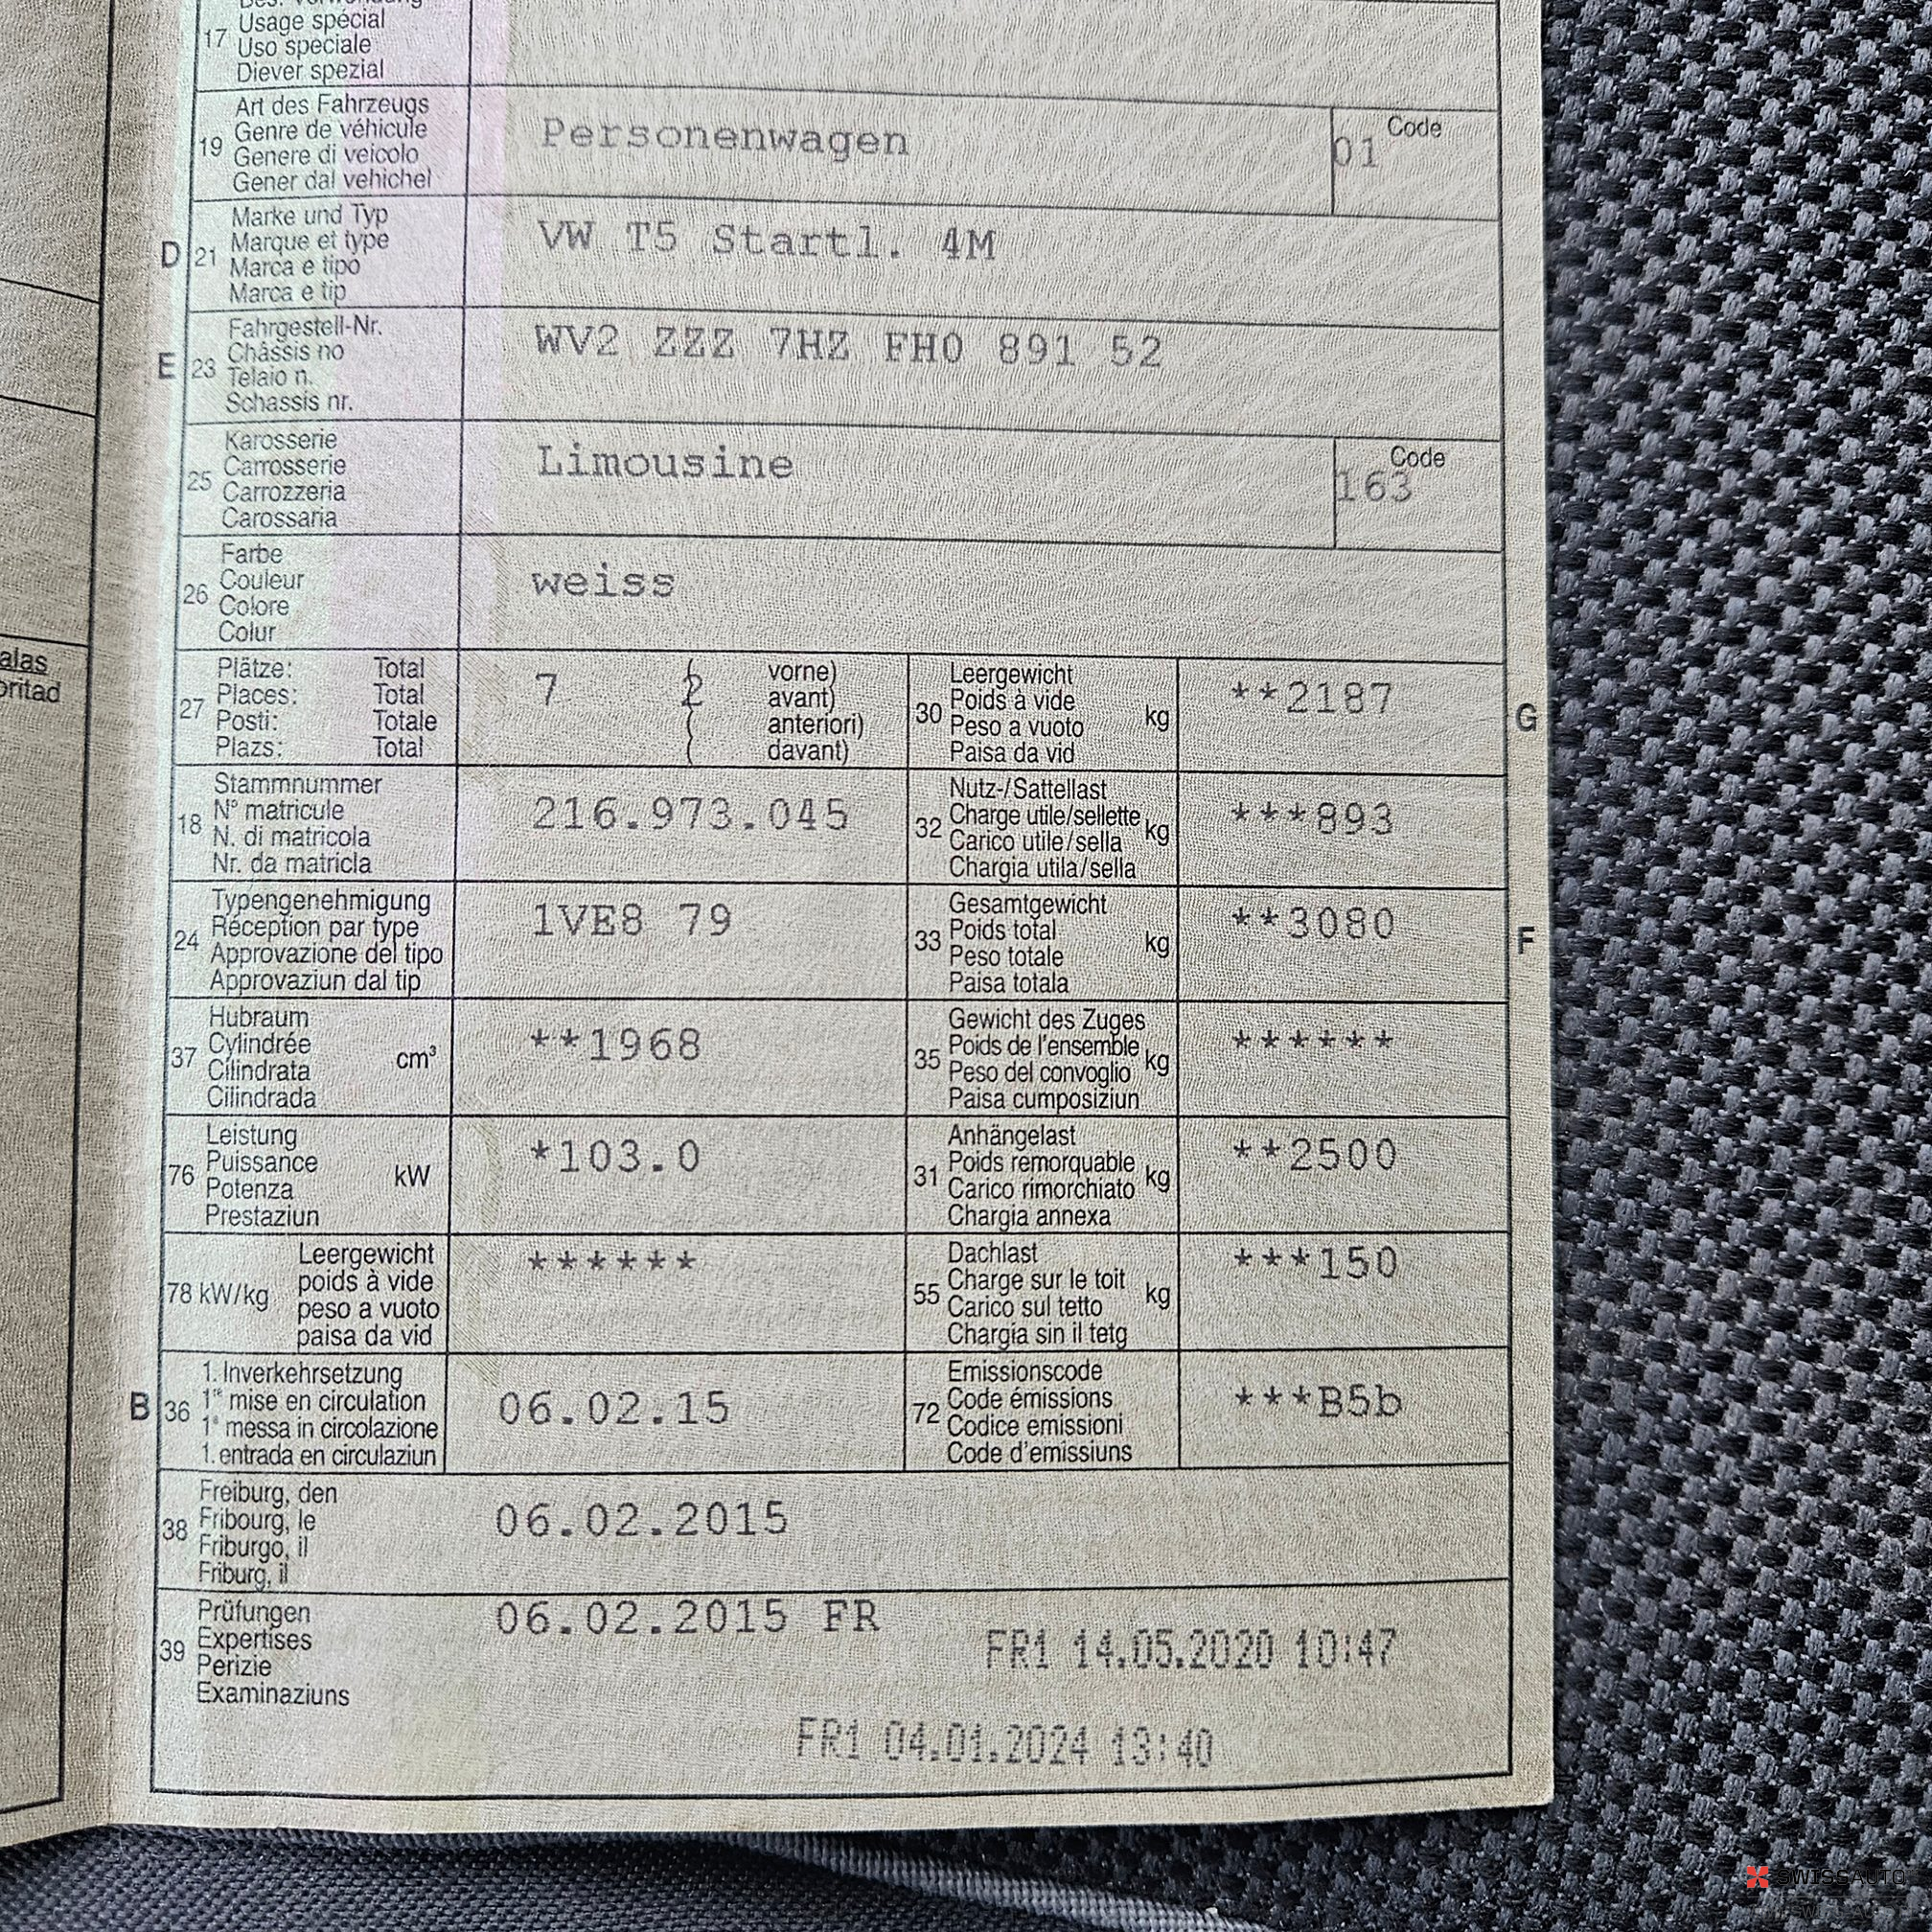 17 Usage spécial
Uso speciale
Diever spezial
19 Art des Fahrzeugs
Genre de véhicule
Genere di veicolo
Gener dal vehichel
Personenwagen
Code
01
D 21 Marke und Typ
Marque et type
Marca e tipo
Marca e tip
VW T5 Startl. 4M
E 23 Fahrgestell-Nr.
Châssis no
Telaio n.
Schassis nr.
WV2 ZZZ 7HZ FH0 891 52
25 Karosserie
Carrosserie
Carrozzeria
Carossaria
Limousine
Code
163
26 Farbe
Couleur
Colore
Colur
weiss
alas
oritad
27 Plätze: Total
Places: Total
Posti: Totale
Plazs: Total
7 2
vorne)
avant)
anteriori)
davant)
30 Leergewicht
Poids à vide
Peso a vuoto
Paisa da vid
kg
**2187
G
18 Stammnummer
N° matricule
N. di matricola
Nr. da matricla
216.973.045
32 Nutz-/Sattellast
Charge utile/sellette
Carico utile/sella
Chargia utila/sella
kg
***893
24 Typengenehmigung
Réception par type
Approvazione del tipo
Approvaziun dal tip
1VE8 79
33 Gesamtgewicht
Poids total
Peso totale
Paisa totala
kg
**3080
F
37 Hubraum
Cylindrée
Cilindrata
Cilindrada
cm³
**1968
35 Gewicht des Zuges
Poids de l'ensemble
Peso del convoglio
Paisa cumposiziun
kg
******
76 Leistung
Puissance
Potenza
Prestaziun
kW
*103.0
31 Anhängelast
Poids remorquable
Carico rimorchiato
Chargia annexa
kg
**2500
78 kW/kg
Leergewicht
poids à vide
peso a vuoto
paisa da vid
******
55 Dachlast
Charge sur le toit
Carico sul tetto
Chargia sin il tetg
kg
***150
B 36 1. Inverkehrsetzung
1re mise en circulation
1a messa in circolazione
1. entrada en circulaziun
06.02.15
72 Emissionscode
Code émissions
Codice emissioni
Code d'emissiuns
***B5b
38 Freiburg, den
Fribourg, le
Friburgo, il
Friburg, il
06.02.2015
39 Prüfungen
Expertises
Perizie
Examinaziuns
06.02.2015 FR
FR1 14.05.2020 10:47
FR1 04.01.2024 13:40
SWISSAUTO